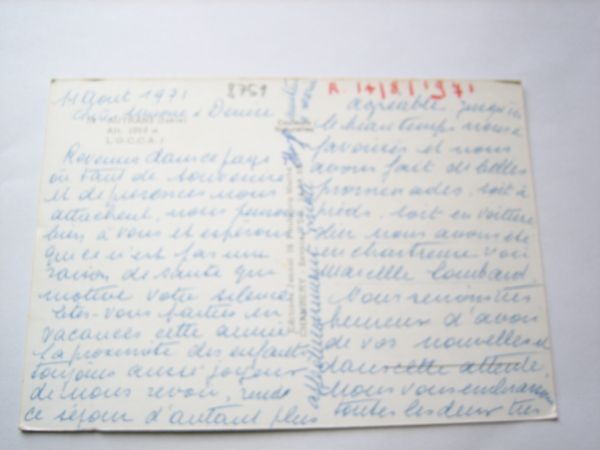 11 Aout 1971
8751
R. 14/8/1971
Chère Simone et Denise
AUTRANS (Isère)
Alt. 1050 m.
L'O.C.C.A.J
Revenus dans ce pays
où tant de souvenirs
et de présences nous
attachent, nous pensons
bien à vous et espérons
que ce n'est pas une
raison de santé qui
motive votre silence
Etes-vous parties en
vacances cette année
La proximité des enfants
toujours aussi joyeux
de nous revoir, rends
ce séjour d'autant plus
CHAMBERY
agréable, jusqu'ici
le beau temps nous a
favorisés et nous
avons fait de belles
promenades, soit à
pieds, soit en voiture
hier nous avons été
en chartreuse voir
Marcelle Lombard.
Nous serions très
heureux d'avoir
de vos nouvelles et
dans cette attente
Nous vous embrassons
toutes les deux très
affectueusement